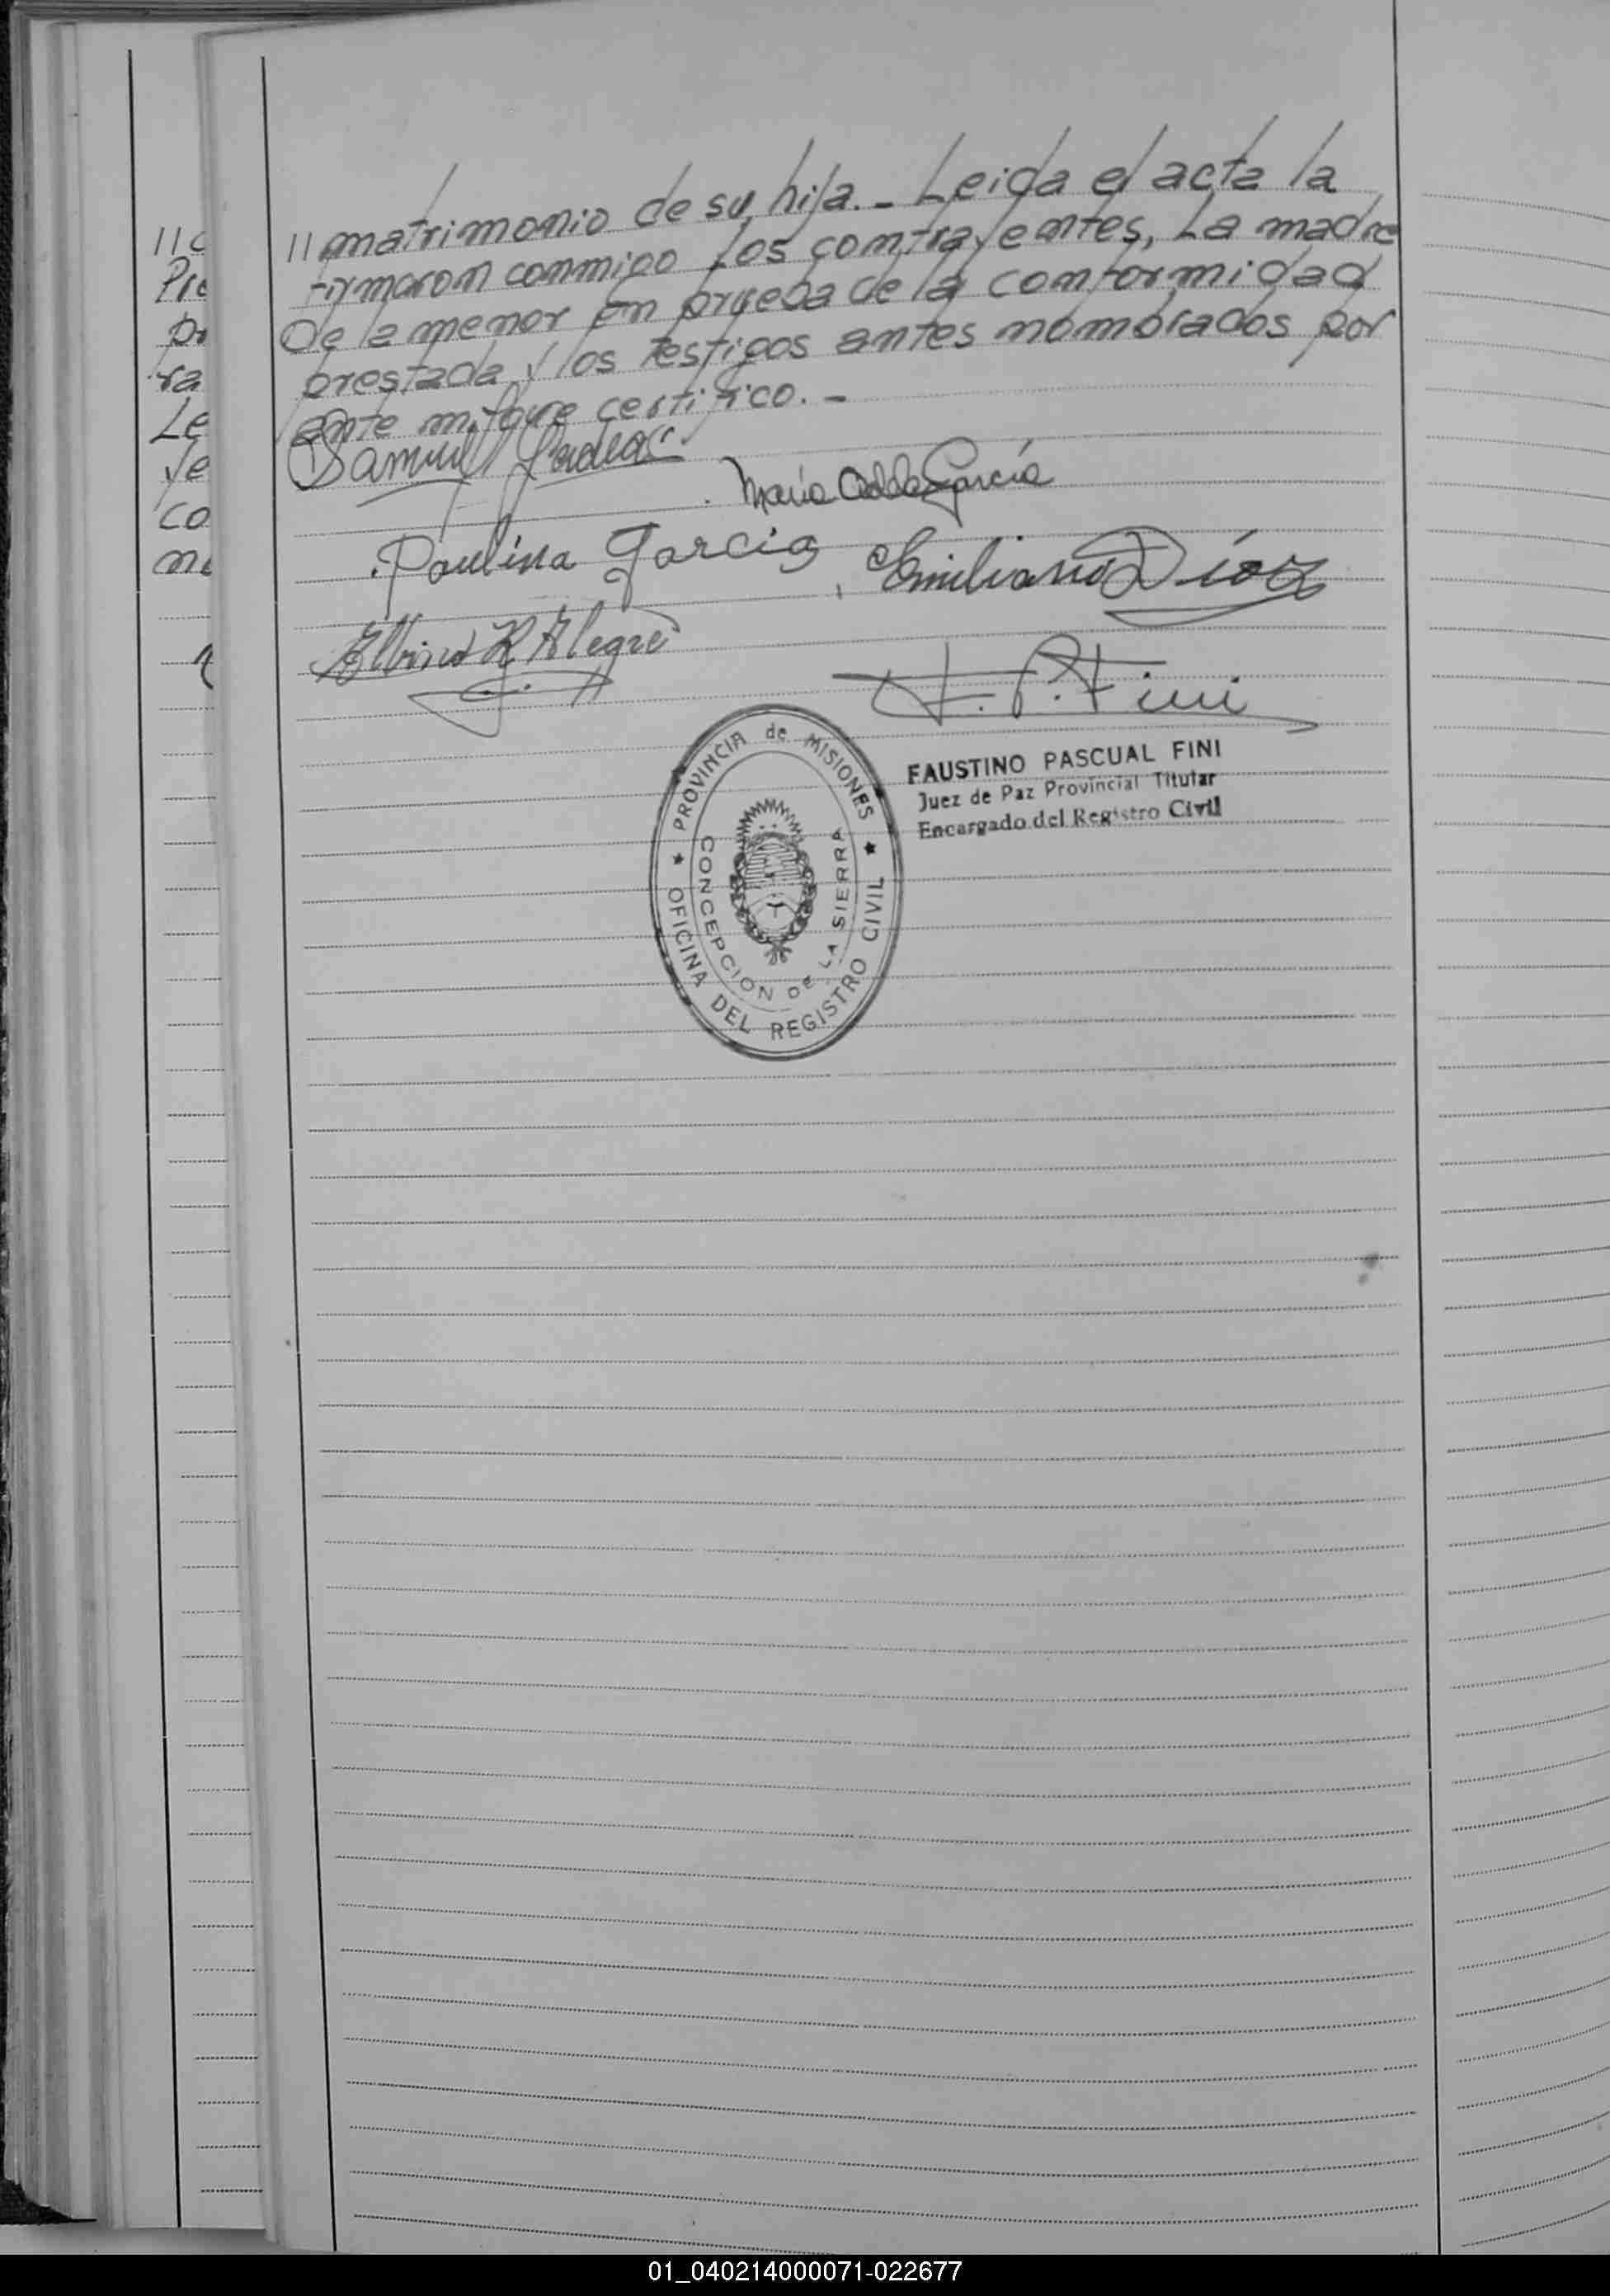 //matrimonio de su hija.- Leida el acta la
firmaron conmigo los contrayentes, la madre
De la menor en prueba de la conformidad
prestada y los testigos antes nombrados por
ante mi que certifico.-
Samuel
Maria Garcia
Paulina Garcia
Emiliano Diaz
Albino R Alegre
F. P. Fini
PROVINCIA de MISIONES
OFICINA DEL REGISTRO CIVIL
CONCEPCION DE LA SIERRA
FAUSTINO PASCUAL FINI
Juez de Paz Provincial Titular
Encargado del Registro Civil
//c
Pro
pr
ra
Le
ye
co
no
01_040214000071-022677